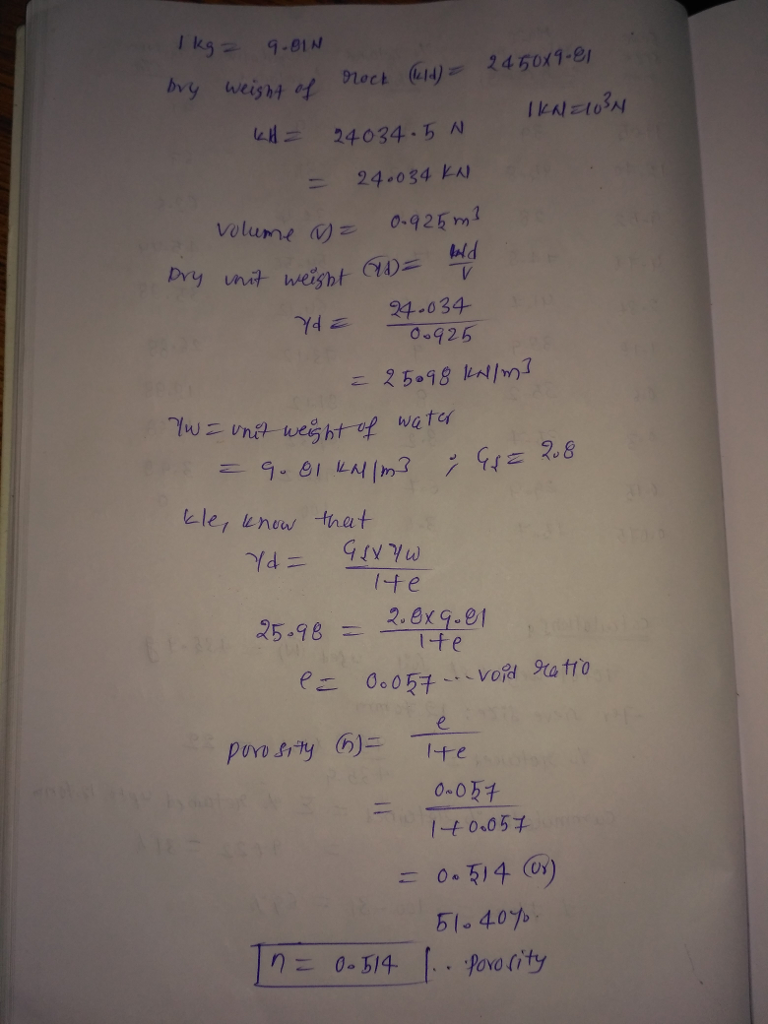 1 kg = 9.81 N
Dry weight of rock (Wd) = 2450x9.81
1 KN = 10³N
Wd = 24034.5 N
= 24.034 KN
volume (v) = 0.925 m³
Dry unit weight (γd) = Wd/V
γd = 24.034/0.925
= 25.98 KN/m³
γw = unit weight of water
= 9.81 KN/m³ ; Gs = 2.8
We, know that
γd = Gs x γw/1+e
25.98 = 2.8x9.81/1+e
e = 0.057 ... void ratio
porosity (n) = e/1+e
= 0.057/1+0.057
= 0.514 (or)
51.40%
n = 0.514 ... porosity